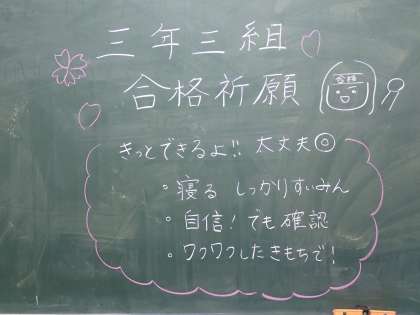 三年三組
合格祈願
合格
きっとできるよ!! 大丈夫◎
・寝る しっかりすいみん
・自信! でも確認
・ワクワクしたきもちで!